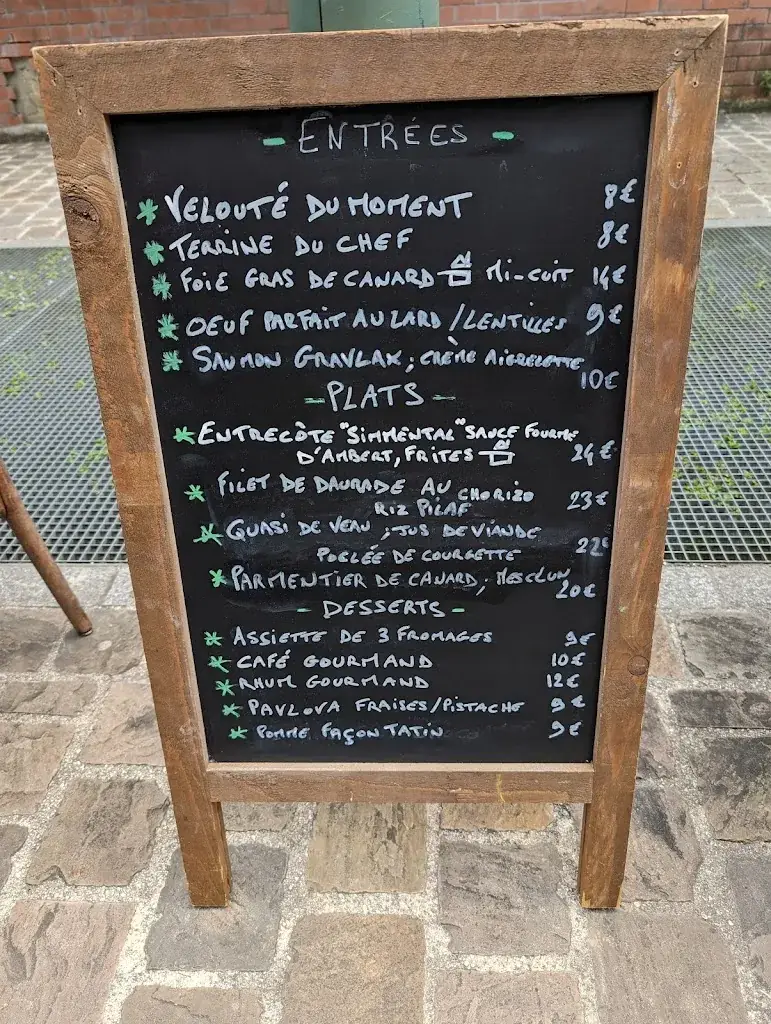 - ENTRÉES -
* VELOUTÉ DU MOMENT 8€
* TERRINE DU CHEF 8€
* FOIE GRAS DE CANARD MI-CUIT 14€
* OEUF PARFAIT AU LARD / LENTILLES 9€
* SAUMON GRAVLAX, CRÈME AIGRELETTE
10€
= PLATS =
* ENTRECÔTE "SIMMENTAL" SAUCE FOURME
D'AMBERT, FRITES 24€
* FILET DE DAURADE AU CHORIZO
RIZ PILAF 23€
* QUASI DE VEAU, JUS DE VIANDE
POELÉE DE COURGETTE 22€
* PARMENTIER DE CANARD, MESCLUN
20€
- DESSERTS -
* ASSIETTE DE 3 FROMAGES 9€
* CAFÉ GOURMAND 10€
* RHUM GOURMAND 12€
* PAVLOVA FRAISES/PISTACHE 9€
* POMME FAÇON TATIN 9€